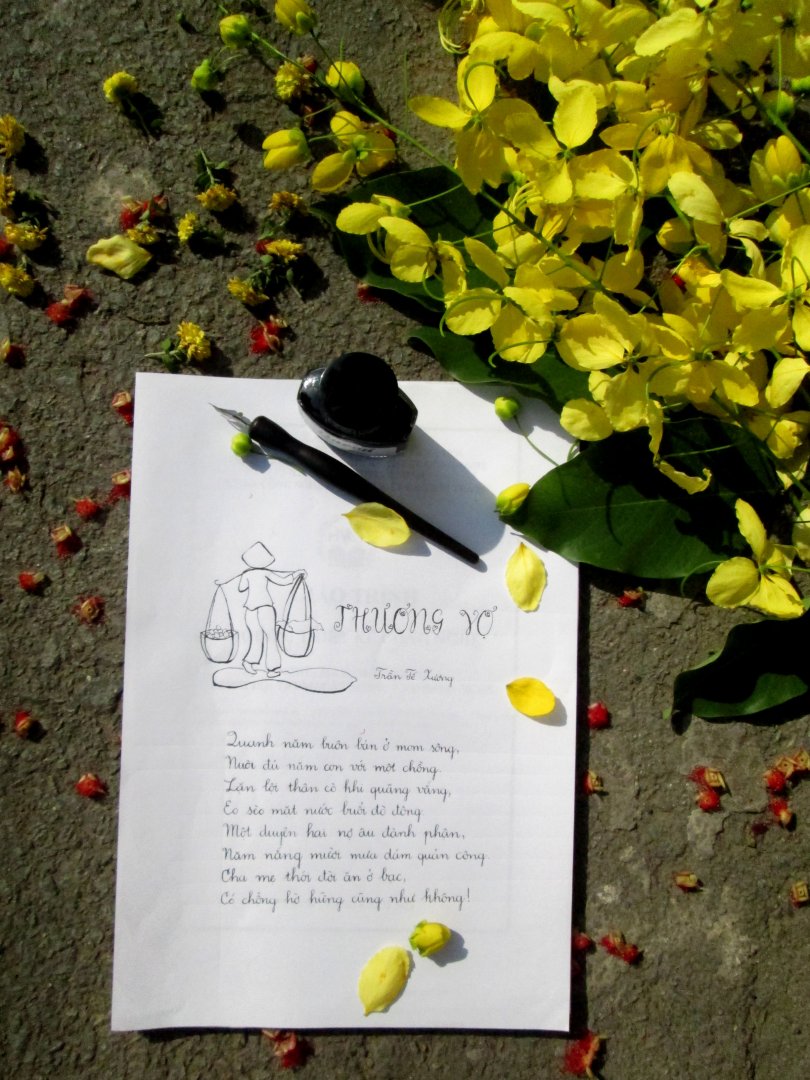 THƯƠNG VỢ
Trần Tế Xương
Quanh năm buôn bán ở mom sông,
Nuôi đủ năm con với một chồng.
Lặn lội thân cò khi quãng vắng,
Eo sèo mặt nước buổi đò đông
Một duyên hai nợ âu đành phận,
Năm nắng mười mưa dám quản công.
Cha mẹ thói đời ăn ở bạc,
Có chồng hờ hững cũng như không!